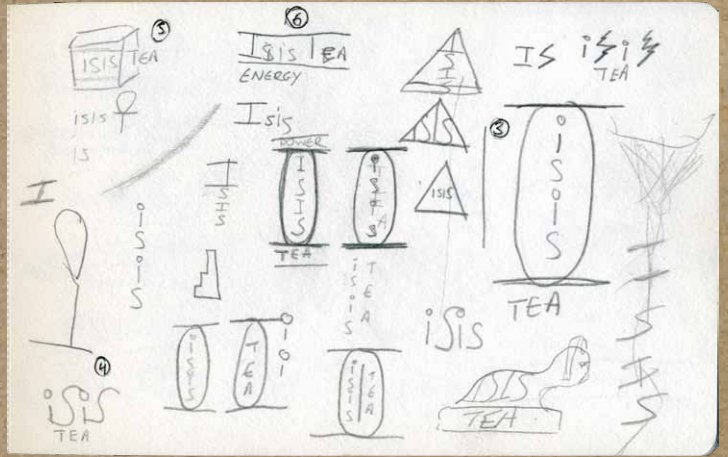 5
ISIS TEA
isis
IS
I
isis
4
isis
TEA
6
Isis TEA
ENERGY
Isis
ISIS
POWER
ISIS
TEA
ISIS
isis TEA
isis
TEA
isis TEA
ISIS
ISIS
ISIS
isis
ISIS
TEA
IS
isis
TEA
3
isis
TEA
ISIS